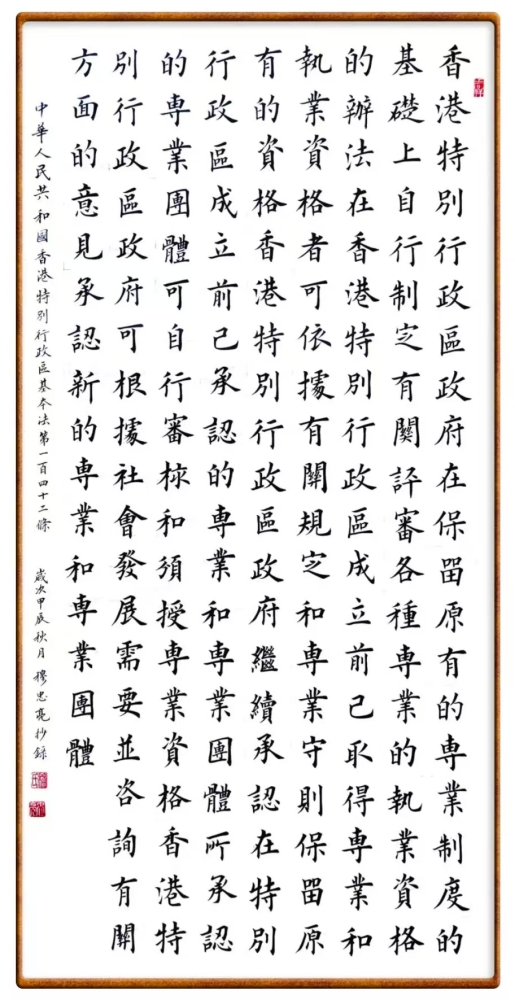 香港特別行政區政府在保留原有的専業制度的
基礎上自行制定有關評審各種専業的執業資格
的辦法在香港特別行政區成立前已取得専業和
執業資格者可依據有關規定和専業守則保留原
有的資格香港特別行政區政府繼續承認在特別
行政區成立前已承認的専業和専業團體所承認
的専業團體可自行審核和頒授専業資格香港特
別行政區政府可根據社會發展需要並咨詢有關
方面的意見承認新的専業和専業團體
中華人民共和國香港特別行政區基本法第一百四十二條 歲次甲辰秋月 穆忠亮抄錄